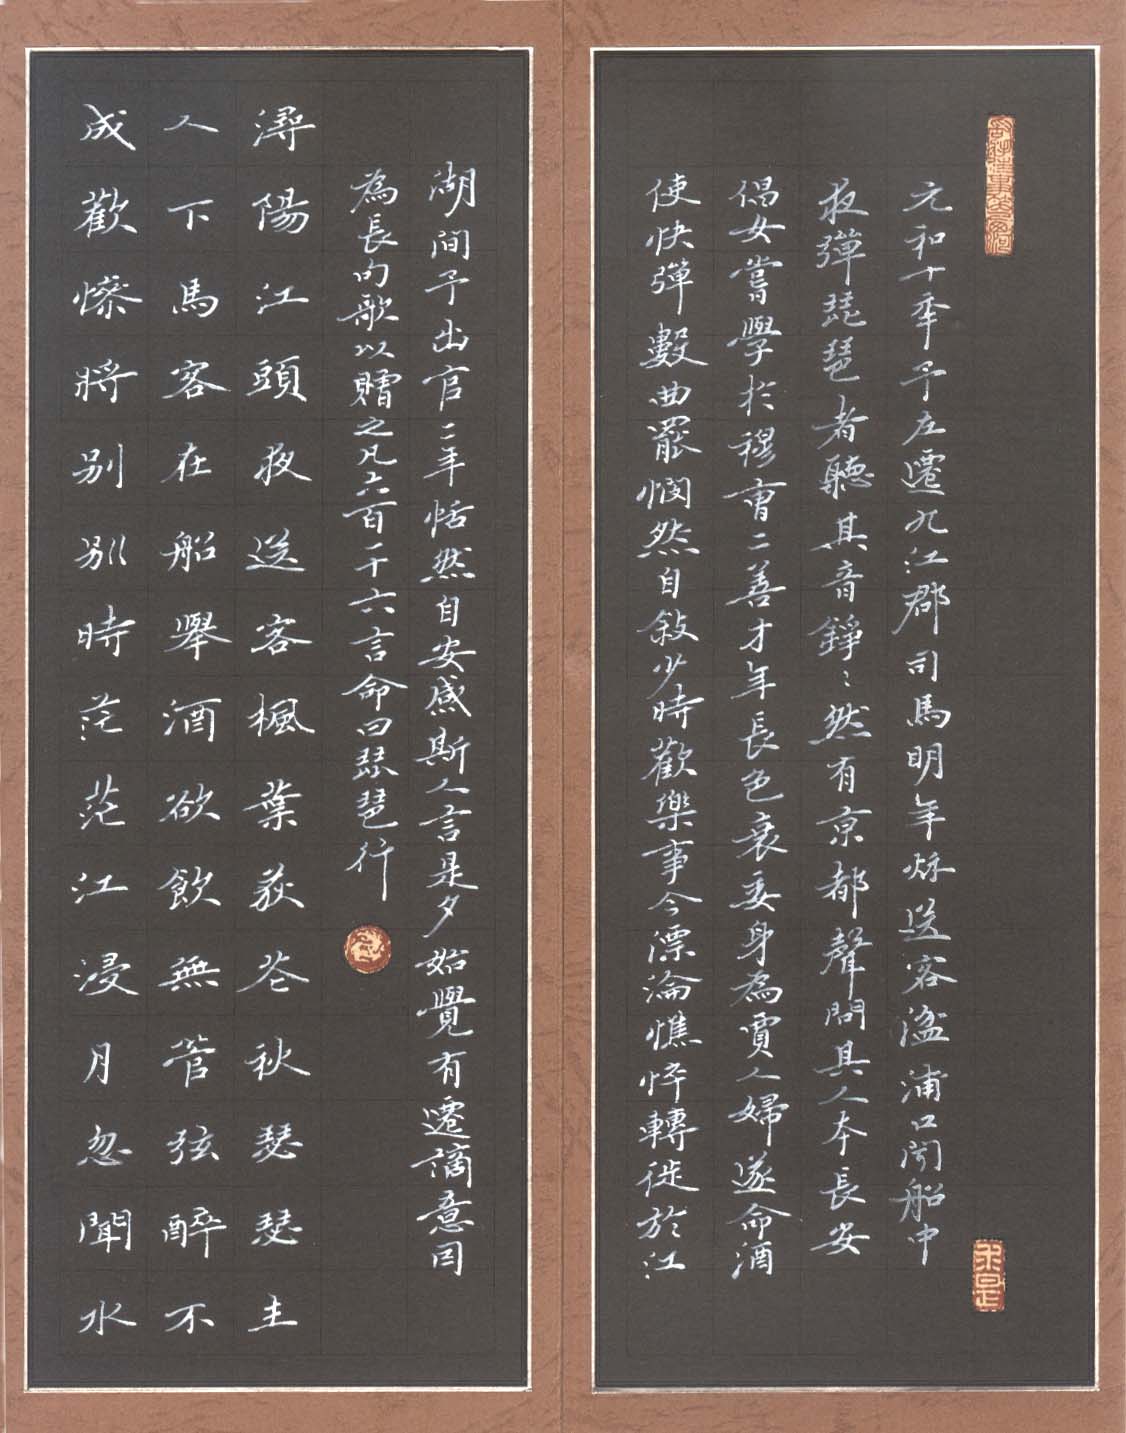 元和十秊予左遷九江郡司馬明年秌送客湓浦口聞船中
夜彈琵琶者聽其音錚〻然有京都聲問其人本長安
倡女嘗學於穆曹二善才年長色衰委身為賈人婦遂命酒
使快彈數曲罷憫然自敘少時歡樂事今漂淪憔悴轉徙於江
湖間予出官二年恬然自安感斯人言是夕始覺有遷謫意因
為長句歌以贈之凡六百千六言命曰琵琶行
潯陽江頭夜送客楓葉荻花秋瑟瑟主
人下馬客在船舉酒欲飲無管弦醉不
成歡慘將別別時茫茫江浸月忽聞水